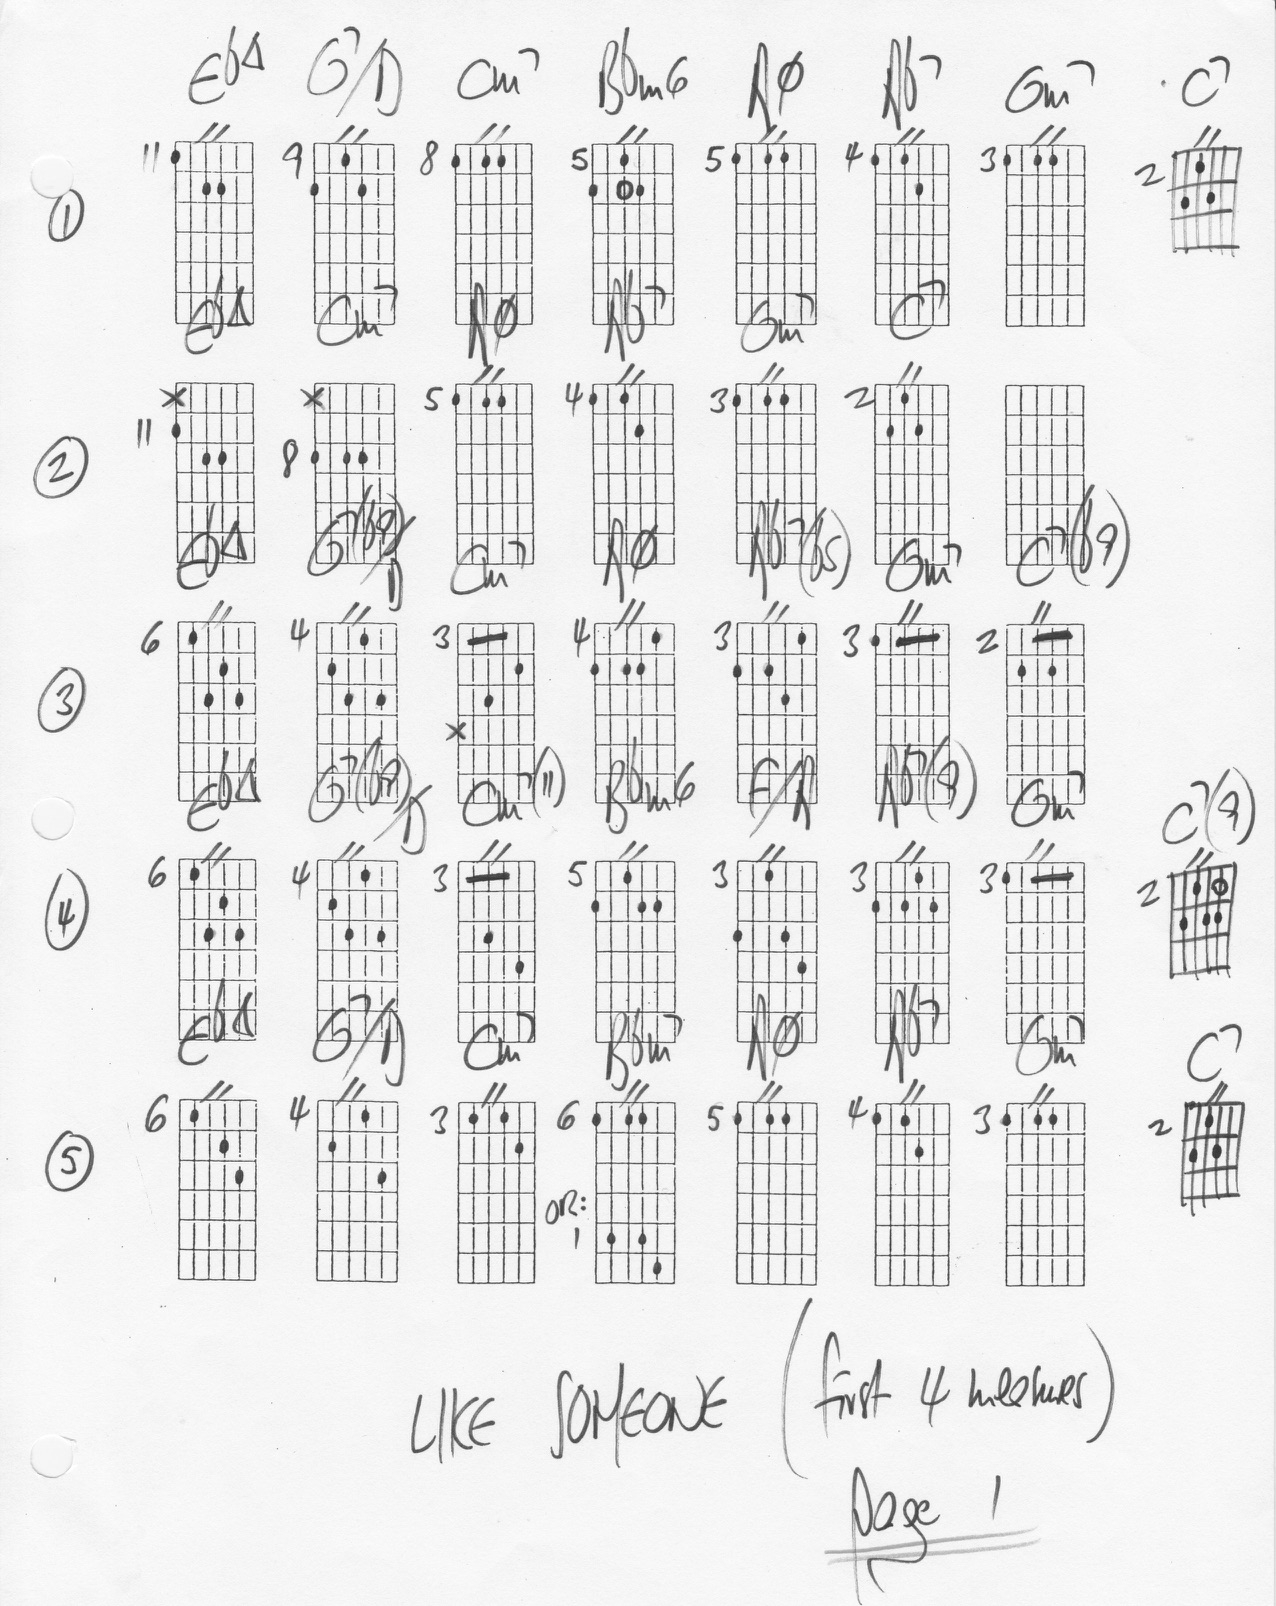 E♭Δ G7/D Cm7 B♭m6 AØ A♭7 Gm7 C7
① 11 9 8 5 5 4 3 2
E♭Δ Cm7 AØ A♭7 Gm7 C7
② x 11 x 8 5 4 3 2
E♭Δ G7(♭9)/D Cm7 AØ A♭7(♭5) Gm7 C7(♭9)
③ 6 4 3 x 4 3 3 2
E♭Δ G7(♭9)/D Cm7(11) B♭m6 F/A A♭7(9) Gm7 C7(9)
④ 6 4 3 5 3 3 3 2
E♭Δ G7/D Cm7 B♭m7 AØ A♭7 Gm7 C7
⑤ 6 4 3 6 5 4 3 2
OR:
1
LIKE SOMEONE (first 4 measures)
page 1